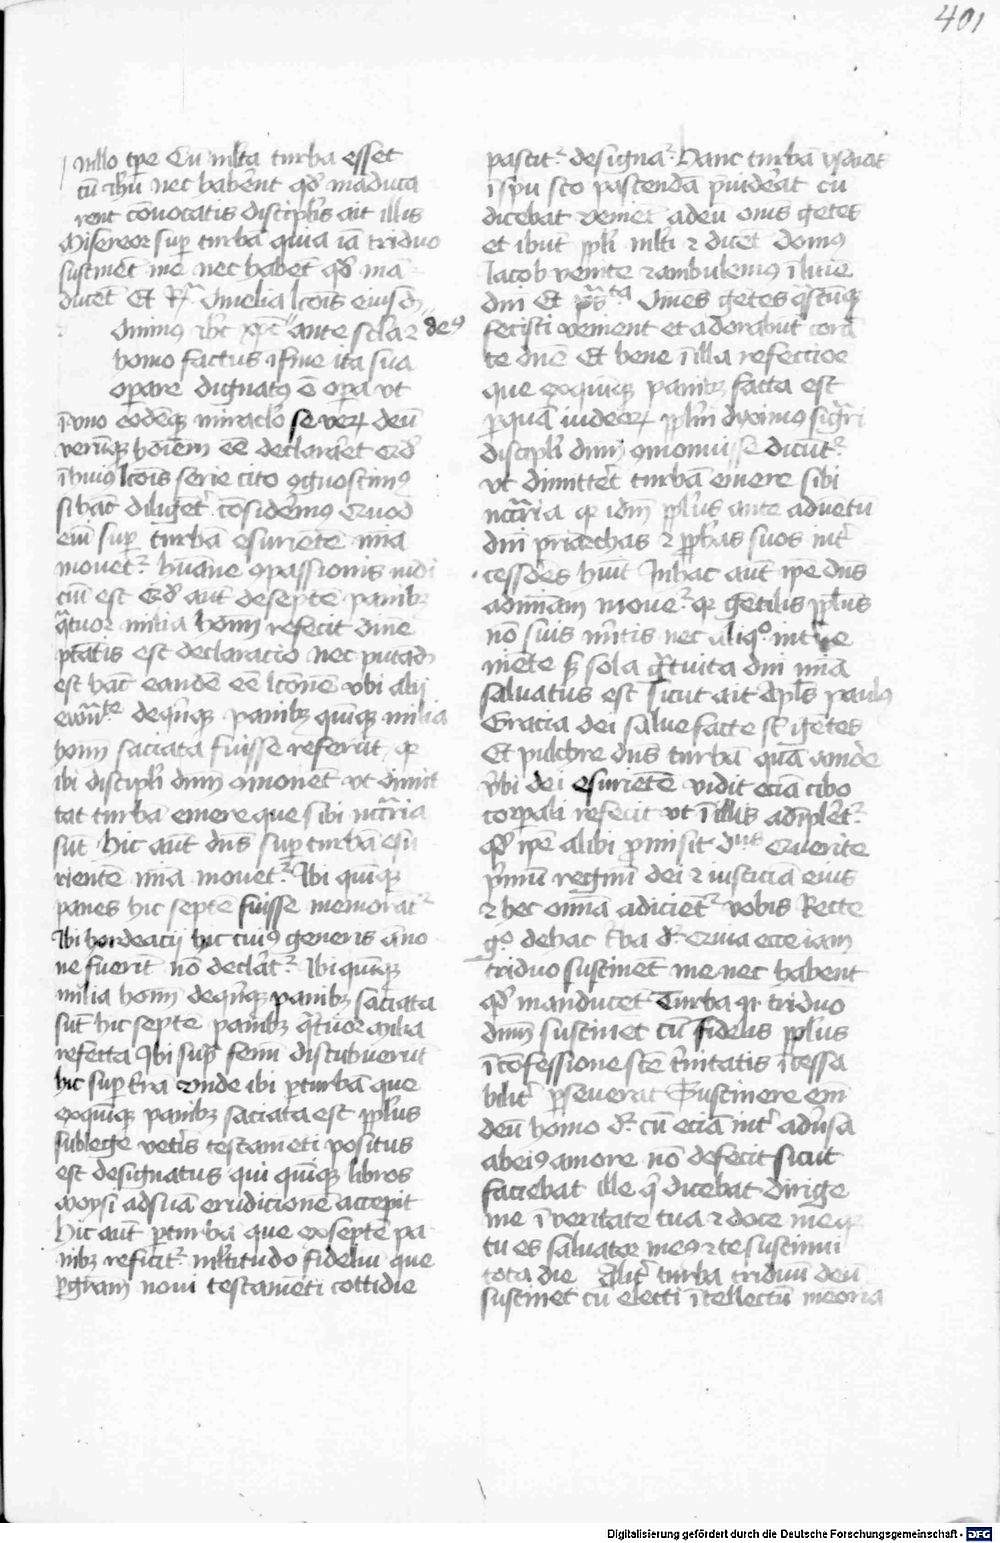 401
Jn illo tpe Cu mlta turba esset
cū ihū nec habēnt qd maduca
rent cōuocatis disciplis ait illis
Misereor sup turbā quia iā triduo
sustinēt me nec habēt qd mā
ducēt Et Rª Omelia lcōis eiusdm
Dominus ihc xpc ante scla deꝰ
homo factus ī fine ita sua
opare dignatꝰ ē opa vt
ī vno eodēqꝫ miraclo se veꝝ deū
verūqꝫ hoiem ēē declararet Qd
ī huiꝰ lcōis serie cito ꝯgnoscimꝰ
si hāc diligent cōsidemꝰ Quod
eni sup turbā esuriēte mia
mouet humane ꝯpassionis indi
ciū est Qd aut de septē panibꝫ
qtuor milia homin refecit diuine
ptātis est declaracio nec putādm
est hāc eandē ēē lcōnē vbi alij
ewāte de qnqꝫ panibꝫ quīqꝫ milia
homin saciata fuisse referūt qr
ibi discipli dnm ꝯmonēt vt dimit
tat turbā emere que sibi ncria
sūt hic aut dns sup turbā esu
rientē mia mouet Ibi quīqꝫ
panes hic septē fuisse memorat
Ibi hordeacij hic cuiꝰ generis āno
ne fuerīt nō declat Ibi quīqꝫ
milia homin de qnqꝫ panibꝫ saciata
sūt hic septē panibꝫ qtuor milia
refecta Ibi sup fenū discubuerūt
hic sup trā Vnde ibi p turbā que
ex quīqꝫ panibꝫ saciata est pplus
sub lege vetis testamēti positus
est designatus qui quīqꝫ libros
moysi ad suā erudicionē accepit
Hic aut p turbā que ex septē pa
nibꝫ reficit mltitudo fideliū que
p gram noui testamēti cottidie
pascit designa Hanc turbā
ī spu sco pascendā puiderat cū
dicebat venient ad eū oms gētes
et ibūt ppli mlti ⁊ dicēt domꝰ
Iacob venite ⁊ ambulemꝰ ī lumē
dni Et Omes gētes qscūqꝫ
fecisti venient et adorabūt corā
te dnē Et bene ī illa refeccioe
que ex quīqꝫ panibꝫ facta est
p quā iudeoꝝ pplm diximꝰ sigri
discipli dnm ꝯmonuisse dicūt
vt dimittet turbā emere sibi
ncria qr idm pplus ante aduētū
dni priarchas ⁊ pphas suos int
cessōes huit In hac aut ipe dns
ad miam moue qr gētilis pplus
nō suis mitis nec aliqo int ue
niēte sꝫ sola grtuita dni mia
saluatus est sicut ait apls paulꝰ
Gracia dei salue facte st gētes
Et pulchre dns turbā quā
vbi dei esuriētē vidit eciā cibo
corpali refecit vt ī illis adīpleret
qd ipe alibi pmisit dns Querite
pmū regnū dei ⁊ iusticiā eius
⁊ hec omīa adicient vobis Recte
go de hac tba dr Quia ecce iam
triduo sustinēt me nec habent
qd manducēt Turba qr triduo
dnm sustinet cū fidelis pplus
ī cōfessione scē tnitatis ī cessa
bilit pseuerat Sustinere em
deū homo dr cū eciā int adusa
ab eiꝰ amore nō defecit sicut
faciebat ille q dicebat dirige
me ī veritate tua ⁊ doce me qr
tu es saluator meꝰ ⁊ te sustinui
tota die Alit turba triduū deū
sustinet cū electi ītellectū meoria
Digitalisierung gefördert durch die Deutsche Forschungsgemeinschaft - DFG